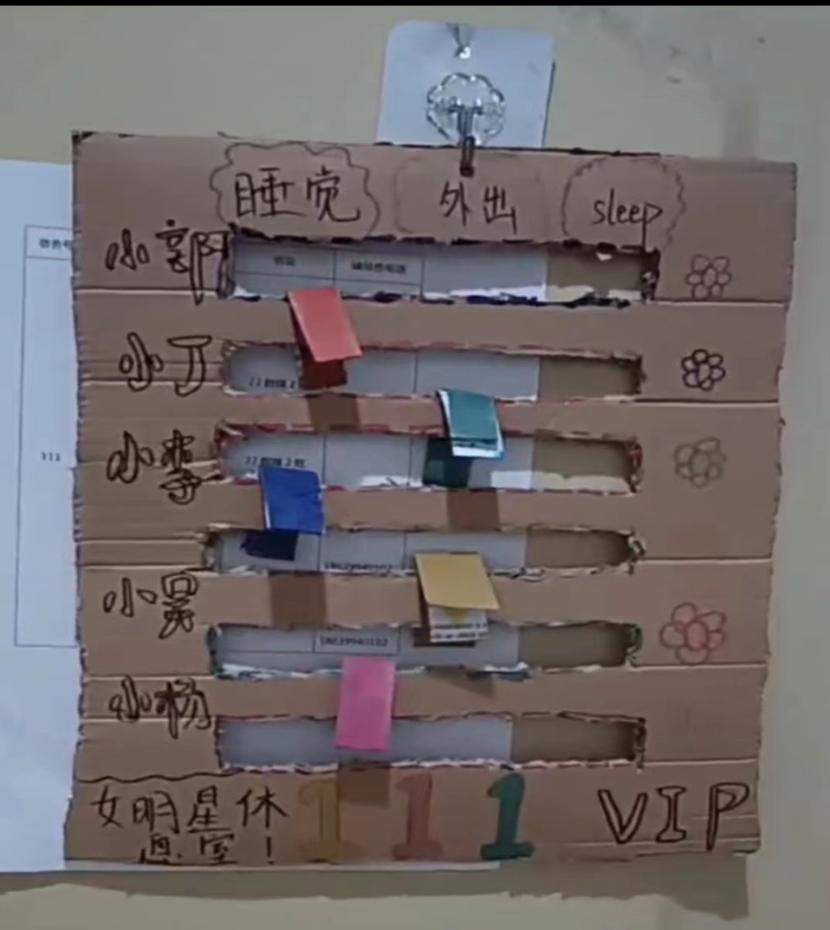 睡觉 外出 sleep
小郭
小丁
小李
小吴
小杨
女明星休 111 VIP
息室!
111